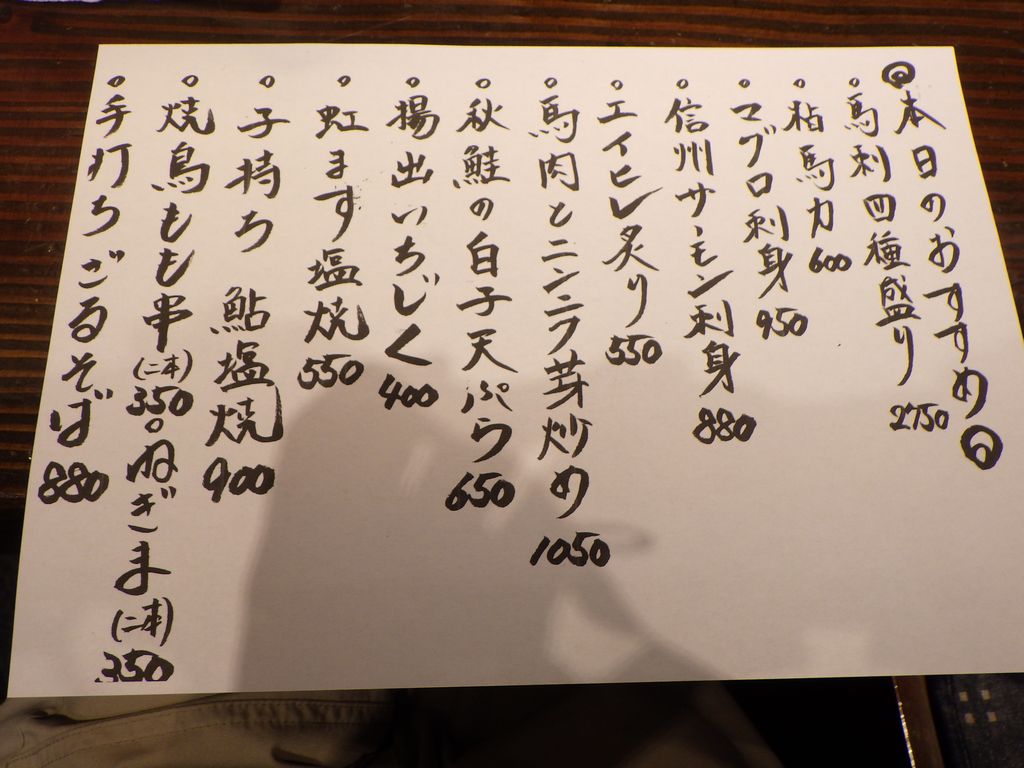 ◎本日のおすすめ◎
。馬刺四種盛り 2750
。粘馬力 600
。マグロ刺身 950
。信州サーモン刺身 880
。エイヒレ炙り 550
。馬肉とニンニク芽炒め 1050
。秋鮭の白子天ぷら 650
。揚出いちじく 400
。虹ます塩焼 550
。子持ち 鮎塩焼 900
。焼鳥もも串(二本) 350。ねぎま(二本) 350
。手打ちざるそば 880